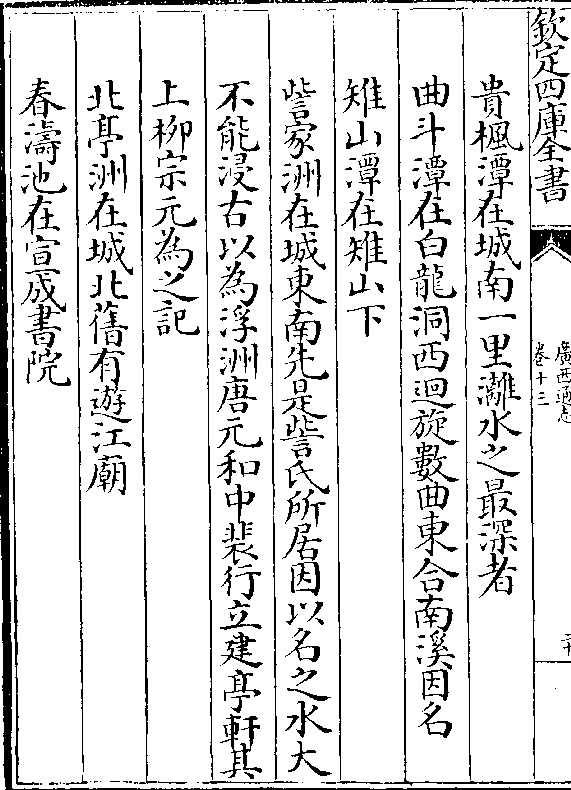 欽定四庫全書
廣西通志
卷十三
貴楓潭在城南一里灕水之最深者
曲斗潭在白龍洞西迴旋數曲東合南溪因名
雉山潭在雉山下
訾家洲在城東南先是訾氏所居因以名之水大
不能浸古以為浮洲唐元和中裴行立建亭軒其
上柳宗元為之記
北亭洲在城北舊有遊江廟
春濤池在宣成書院